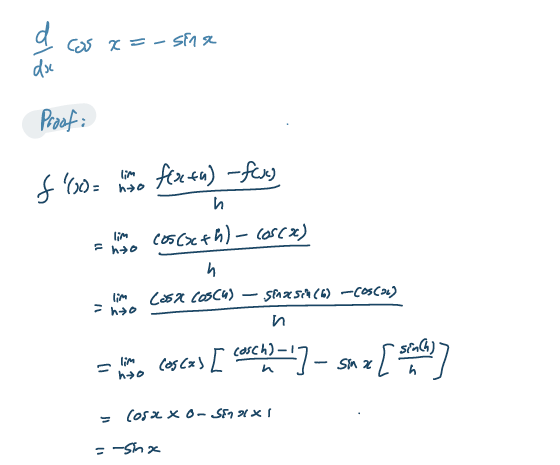 d/dx cos x = - sin x
Proof:
f'(x) = lim h→0 f(x+h) - f(x) / h
= lim h→0 cos(x+h) - cos(x) / h
= lim h→0 cosx cos(h) - sinx sin(h) - cos(x) / h
= lim h→0 cos(x) [ cos(h) - 1 / h ] - sin x [ sin(h) / h ]
= cosx × 0 - sinx × 1
= -sin x